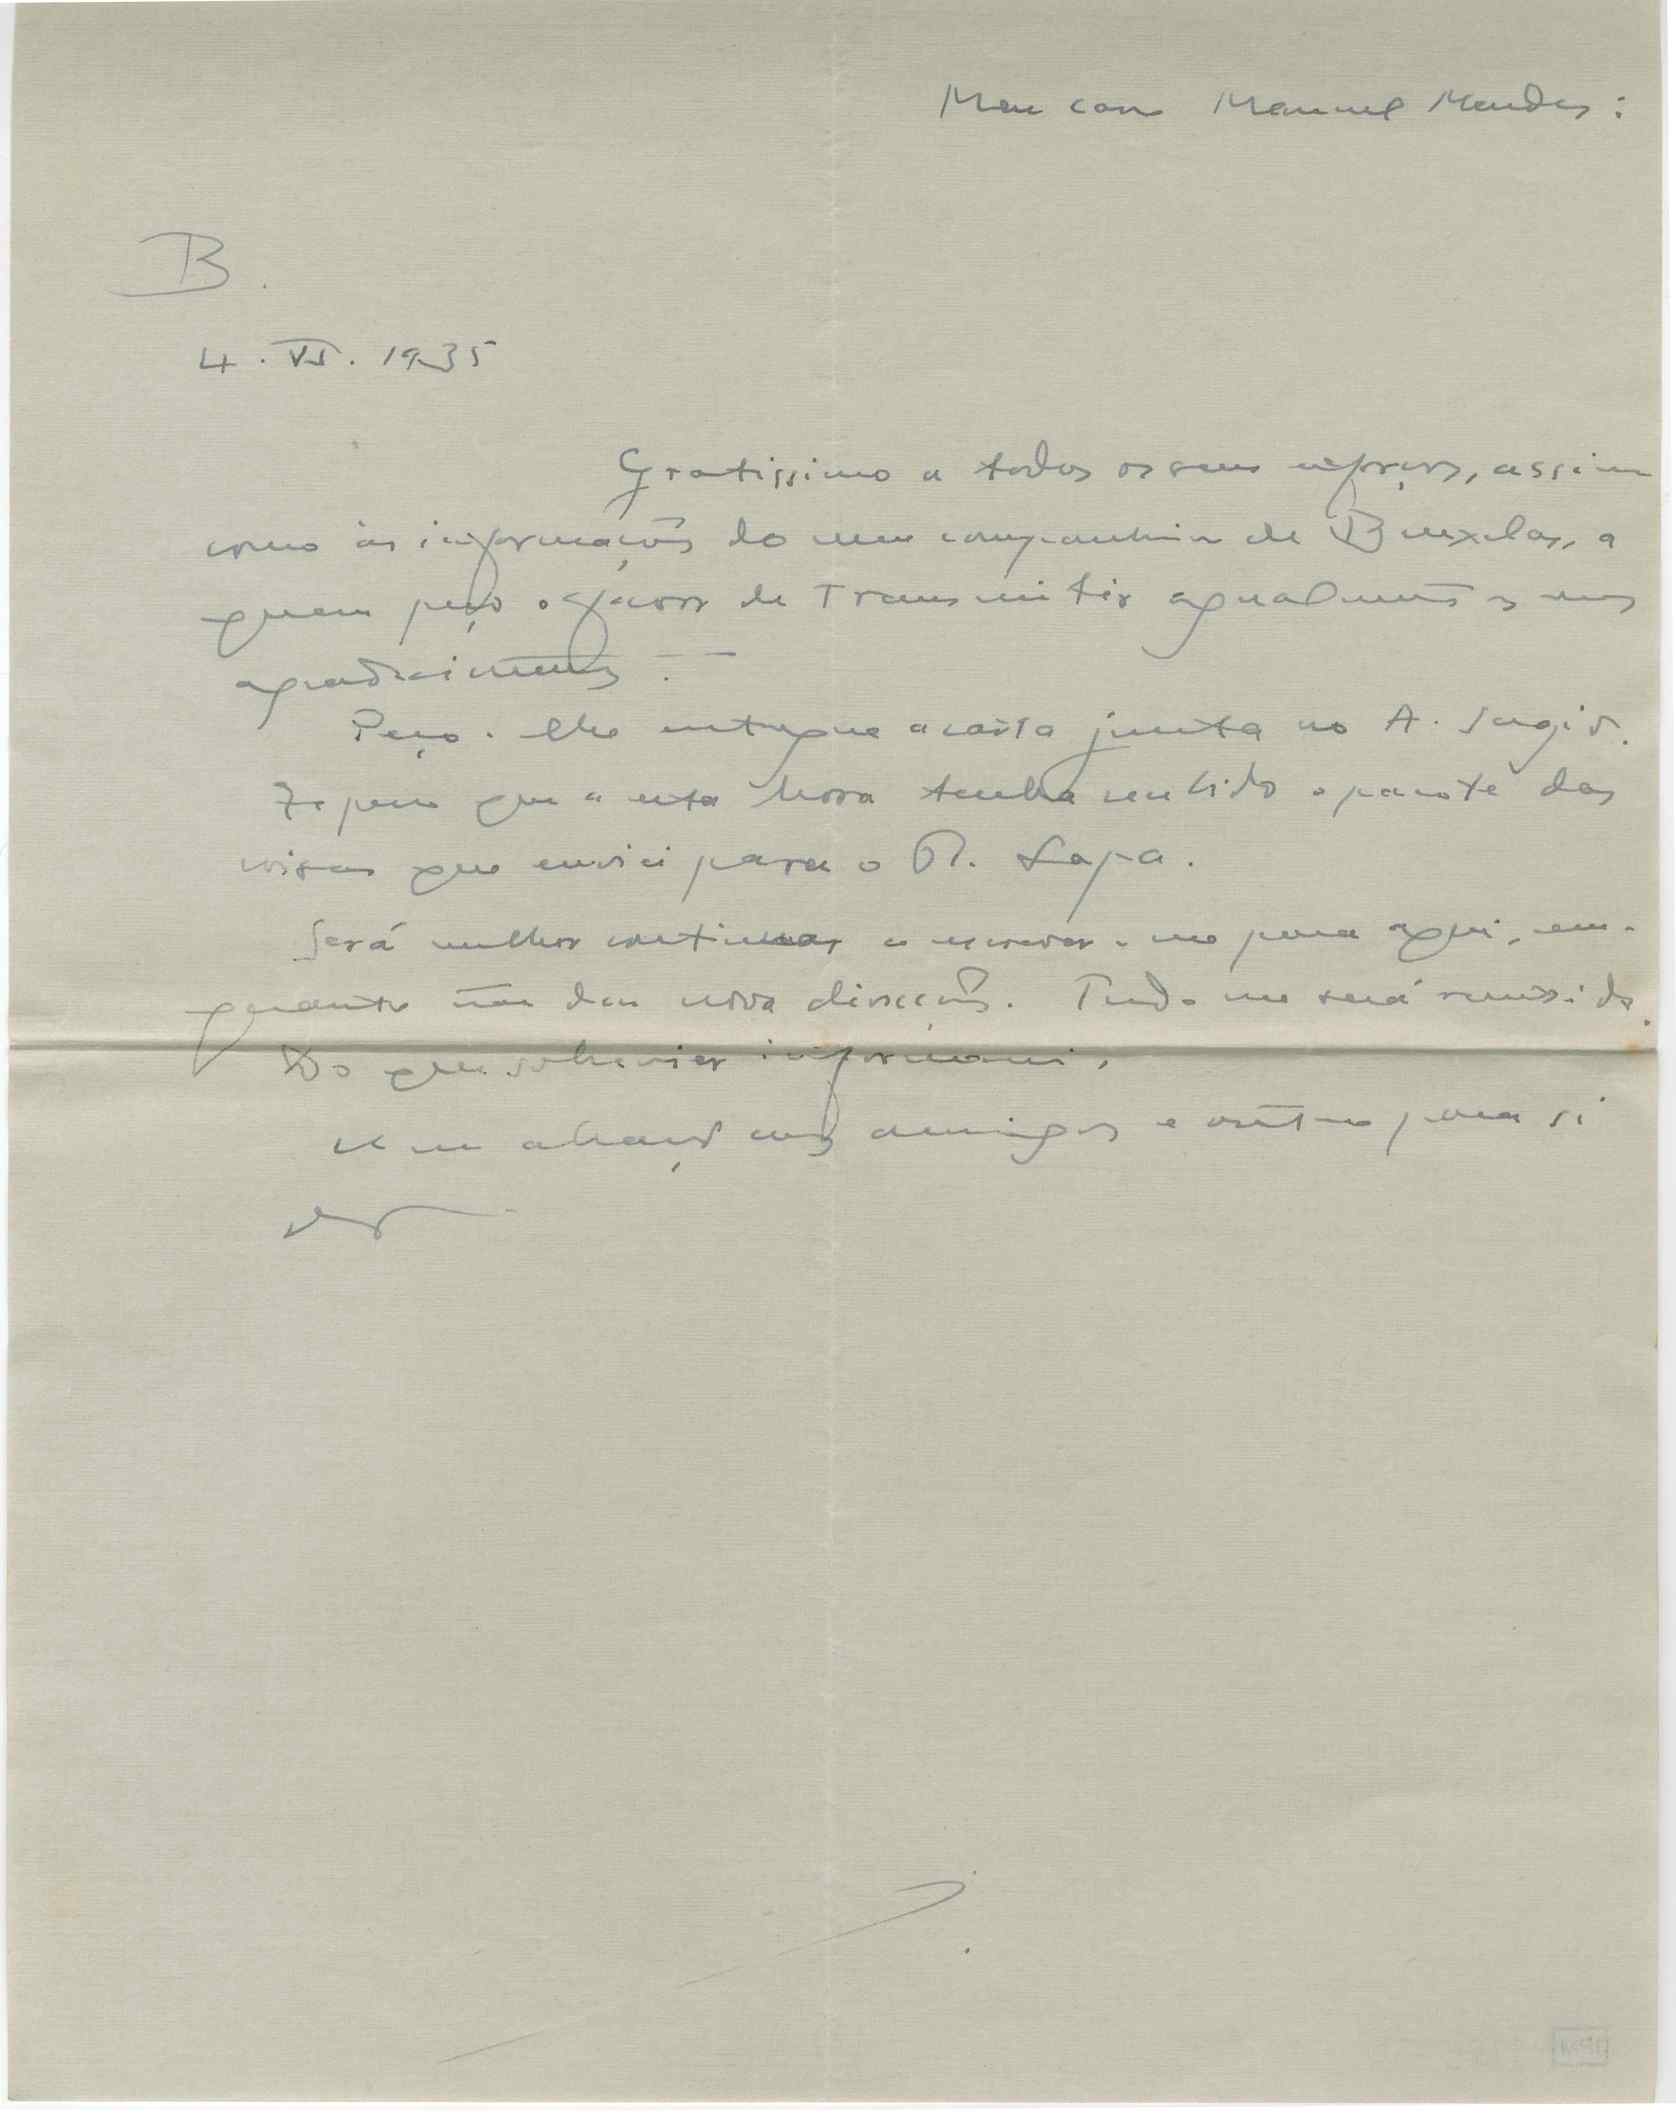 Meu caro Manuel Mendes:
B.
4. VI. 1935
Gratissimo a todos os seus esforços, assim
como às informações do meu companheiro de Bruxelas, a
quem peço o favor de transmitir igualmente os meus
agradecimentos.
Peço-lhe entregue a carta junta ao A. Sergio.
Espero que a esta hora tenha recebido o pacote das
coisas que enviei para o R. Lapa.
Será melhor continuar a escrever-me para aqui, em-
quanto não der nova direcção. Tudo me será remetido.
Do que sobrevier informarei.
Um abraço aos amigos e outro para si